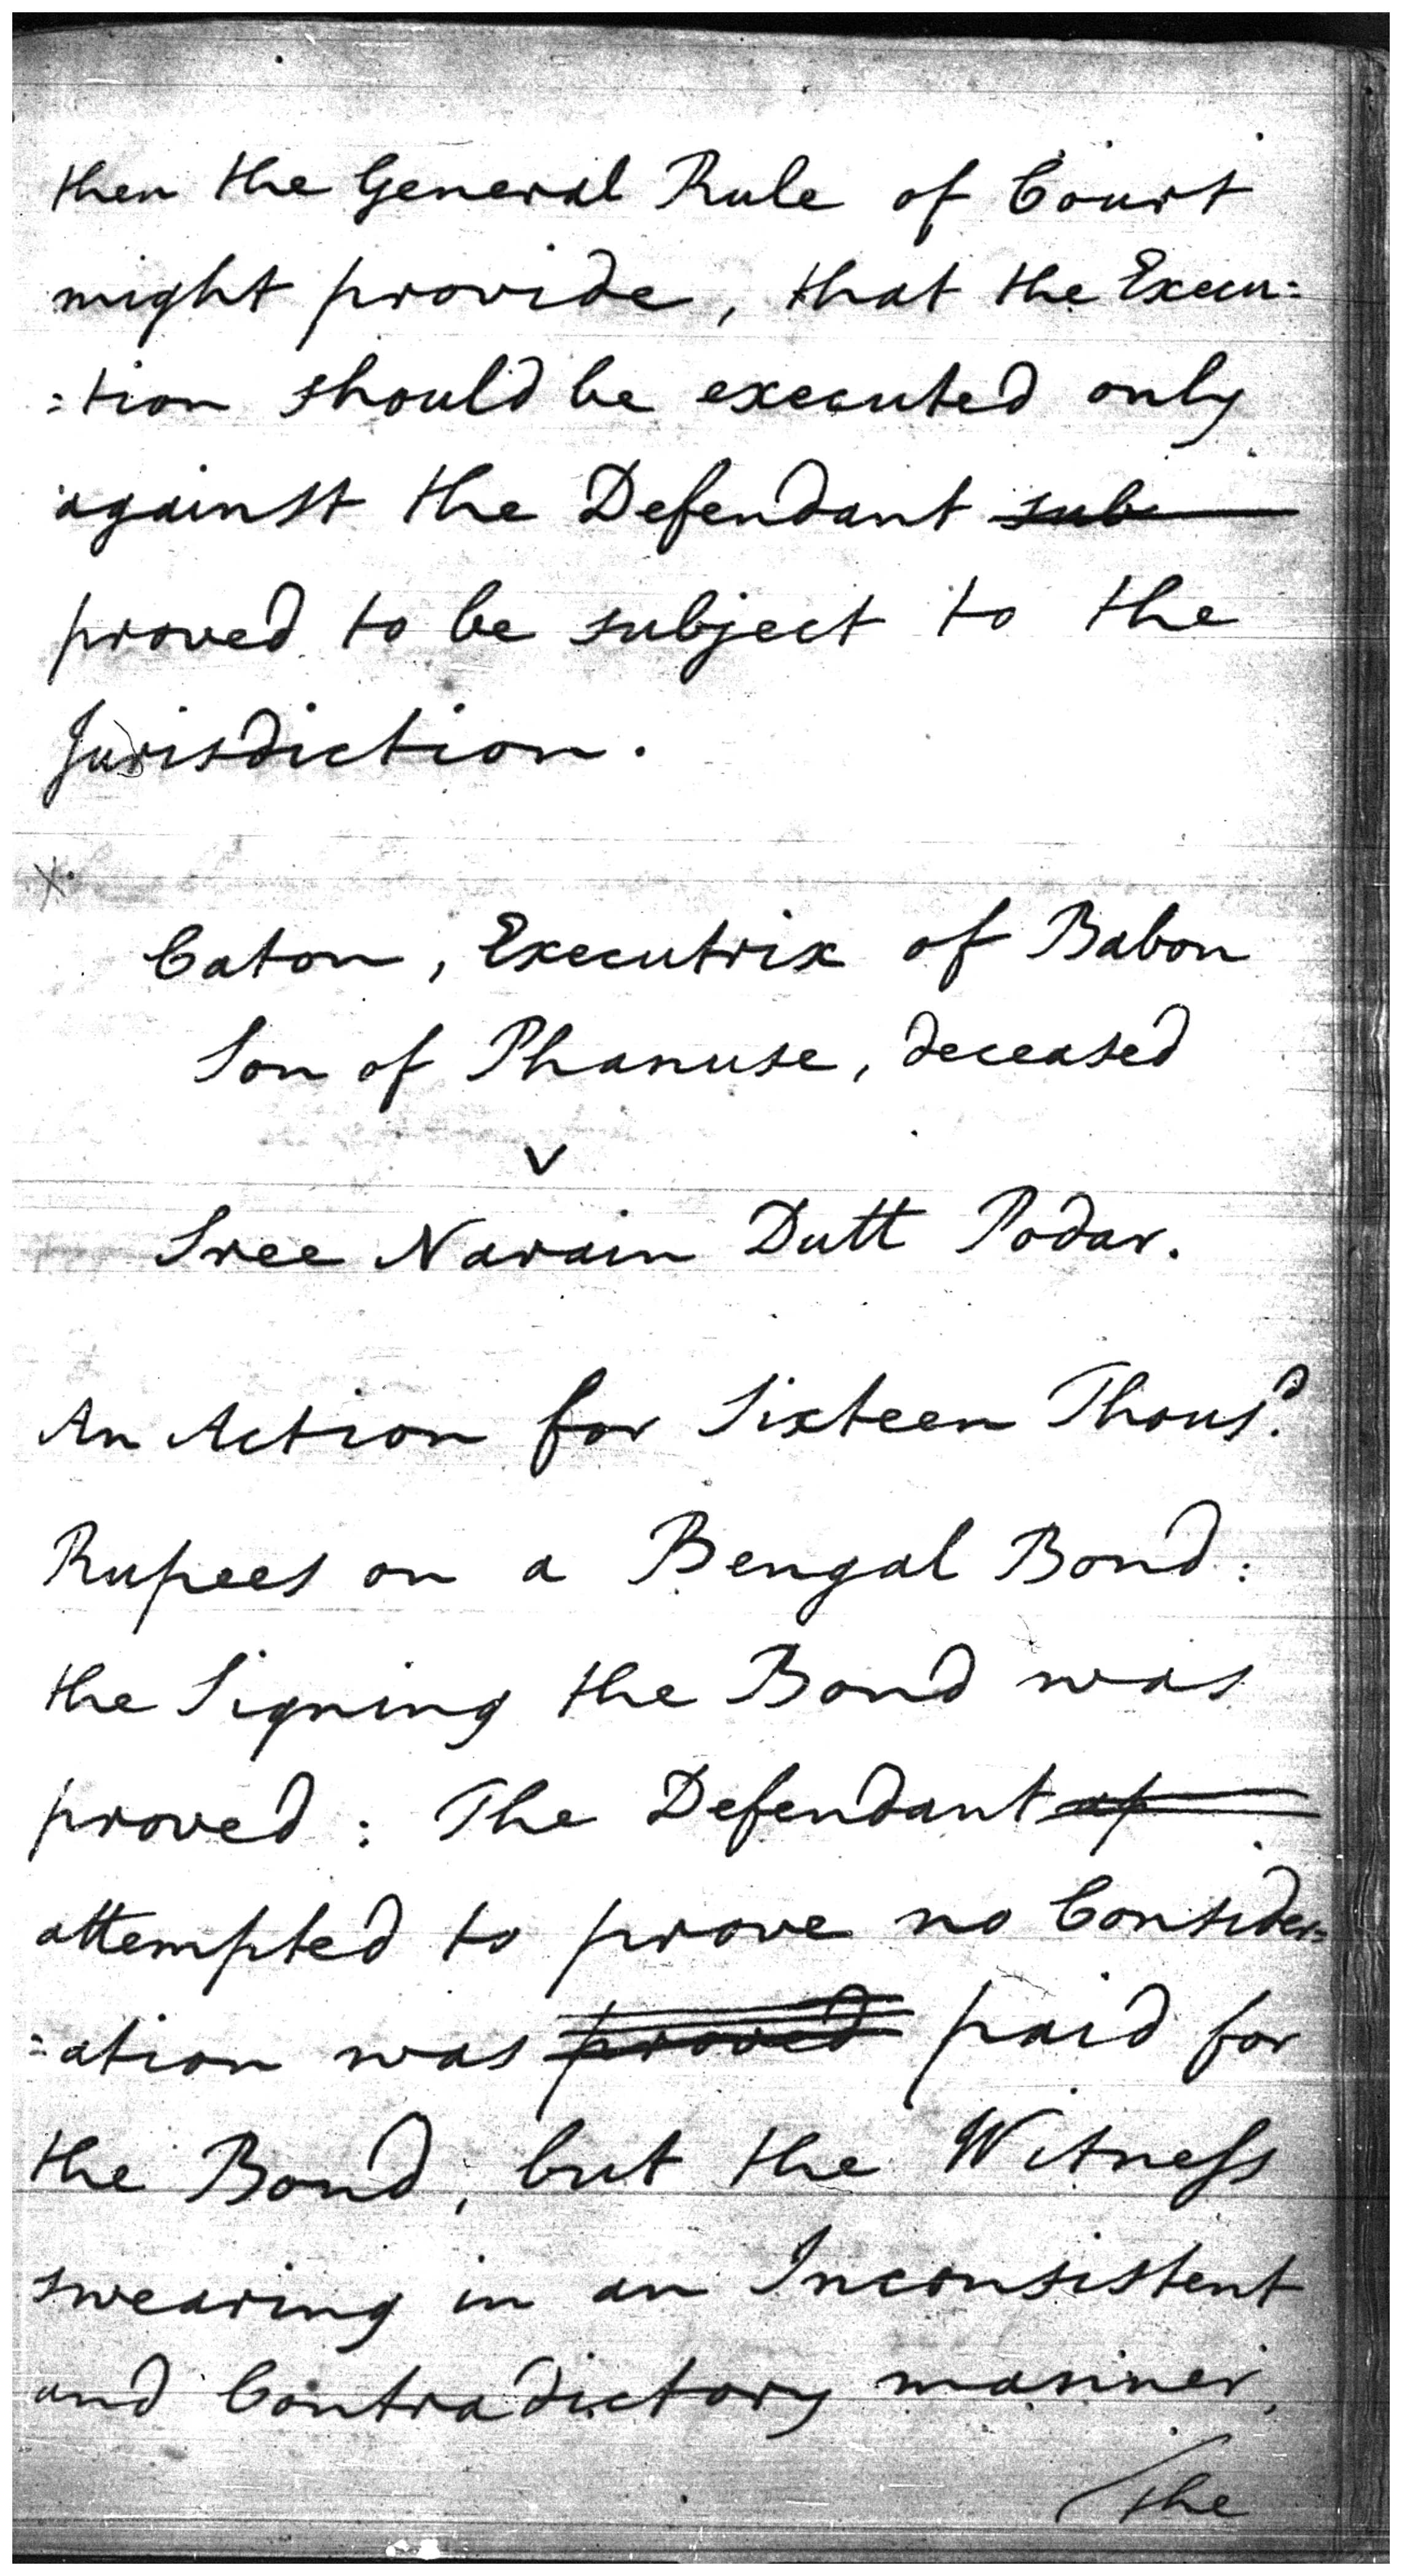 then the General Rule of Court
might provide, that the Execu=
=tion should be executed only
against the Defendant sub
proved to be subject to the
Jurisdiction.
Caton, Executrix of Babon
Son of Phanuse, deceased
v
Sree Narain Dutt Podar.
An Action for Sixteen Thousd.
Rupees on a Bengal Bond:
the Signing the Bond was
proved: The Defendant
attempted to prove no Consider=
=ation was proved paid for
the Bond, but the Witness
swearing in an Inconsistent
and Contradictory manner,
The